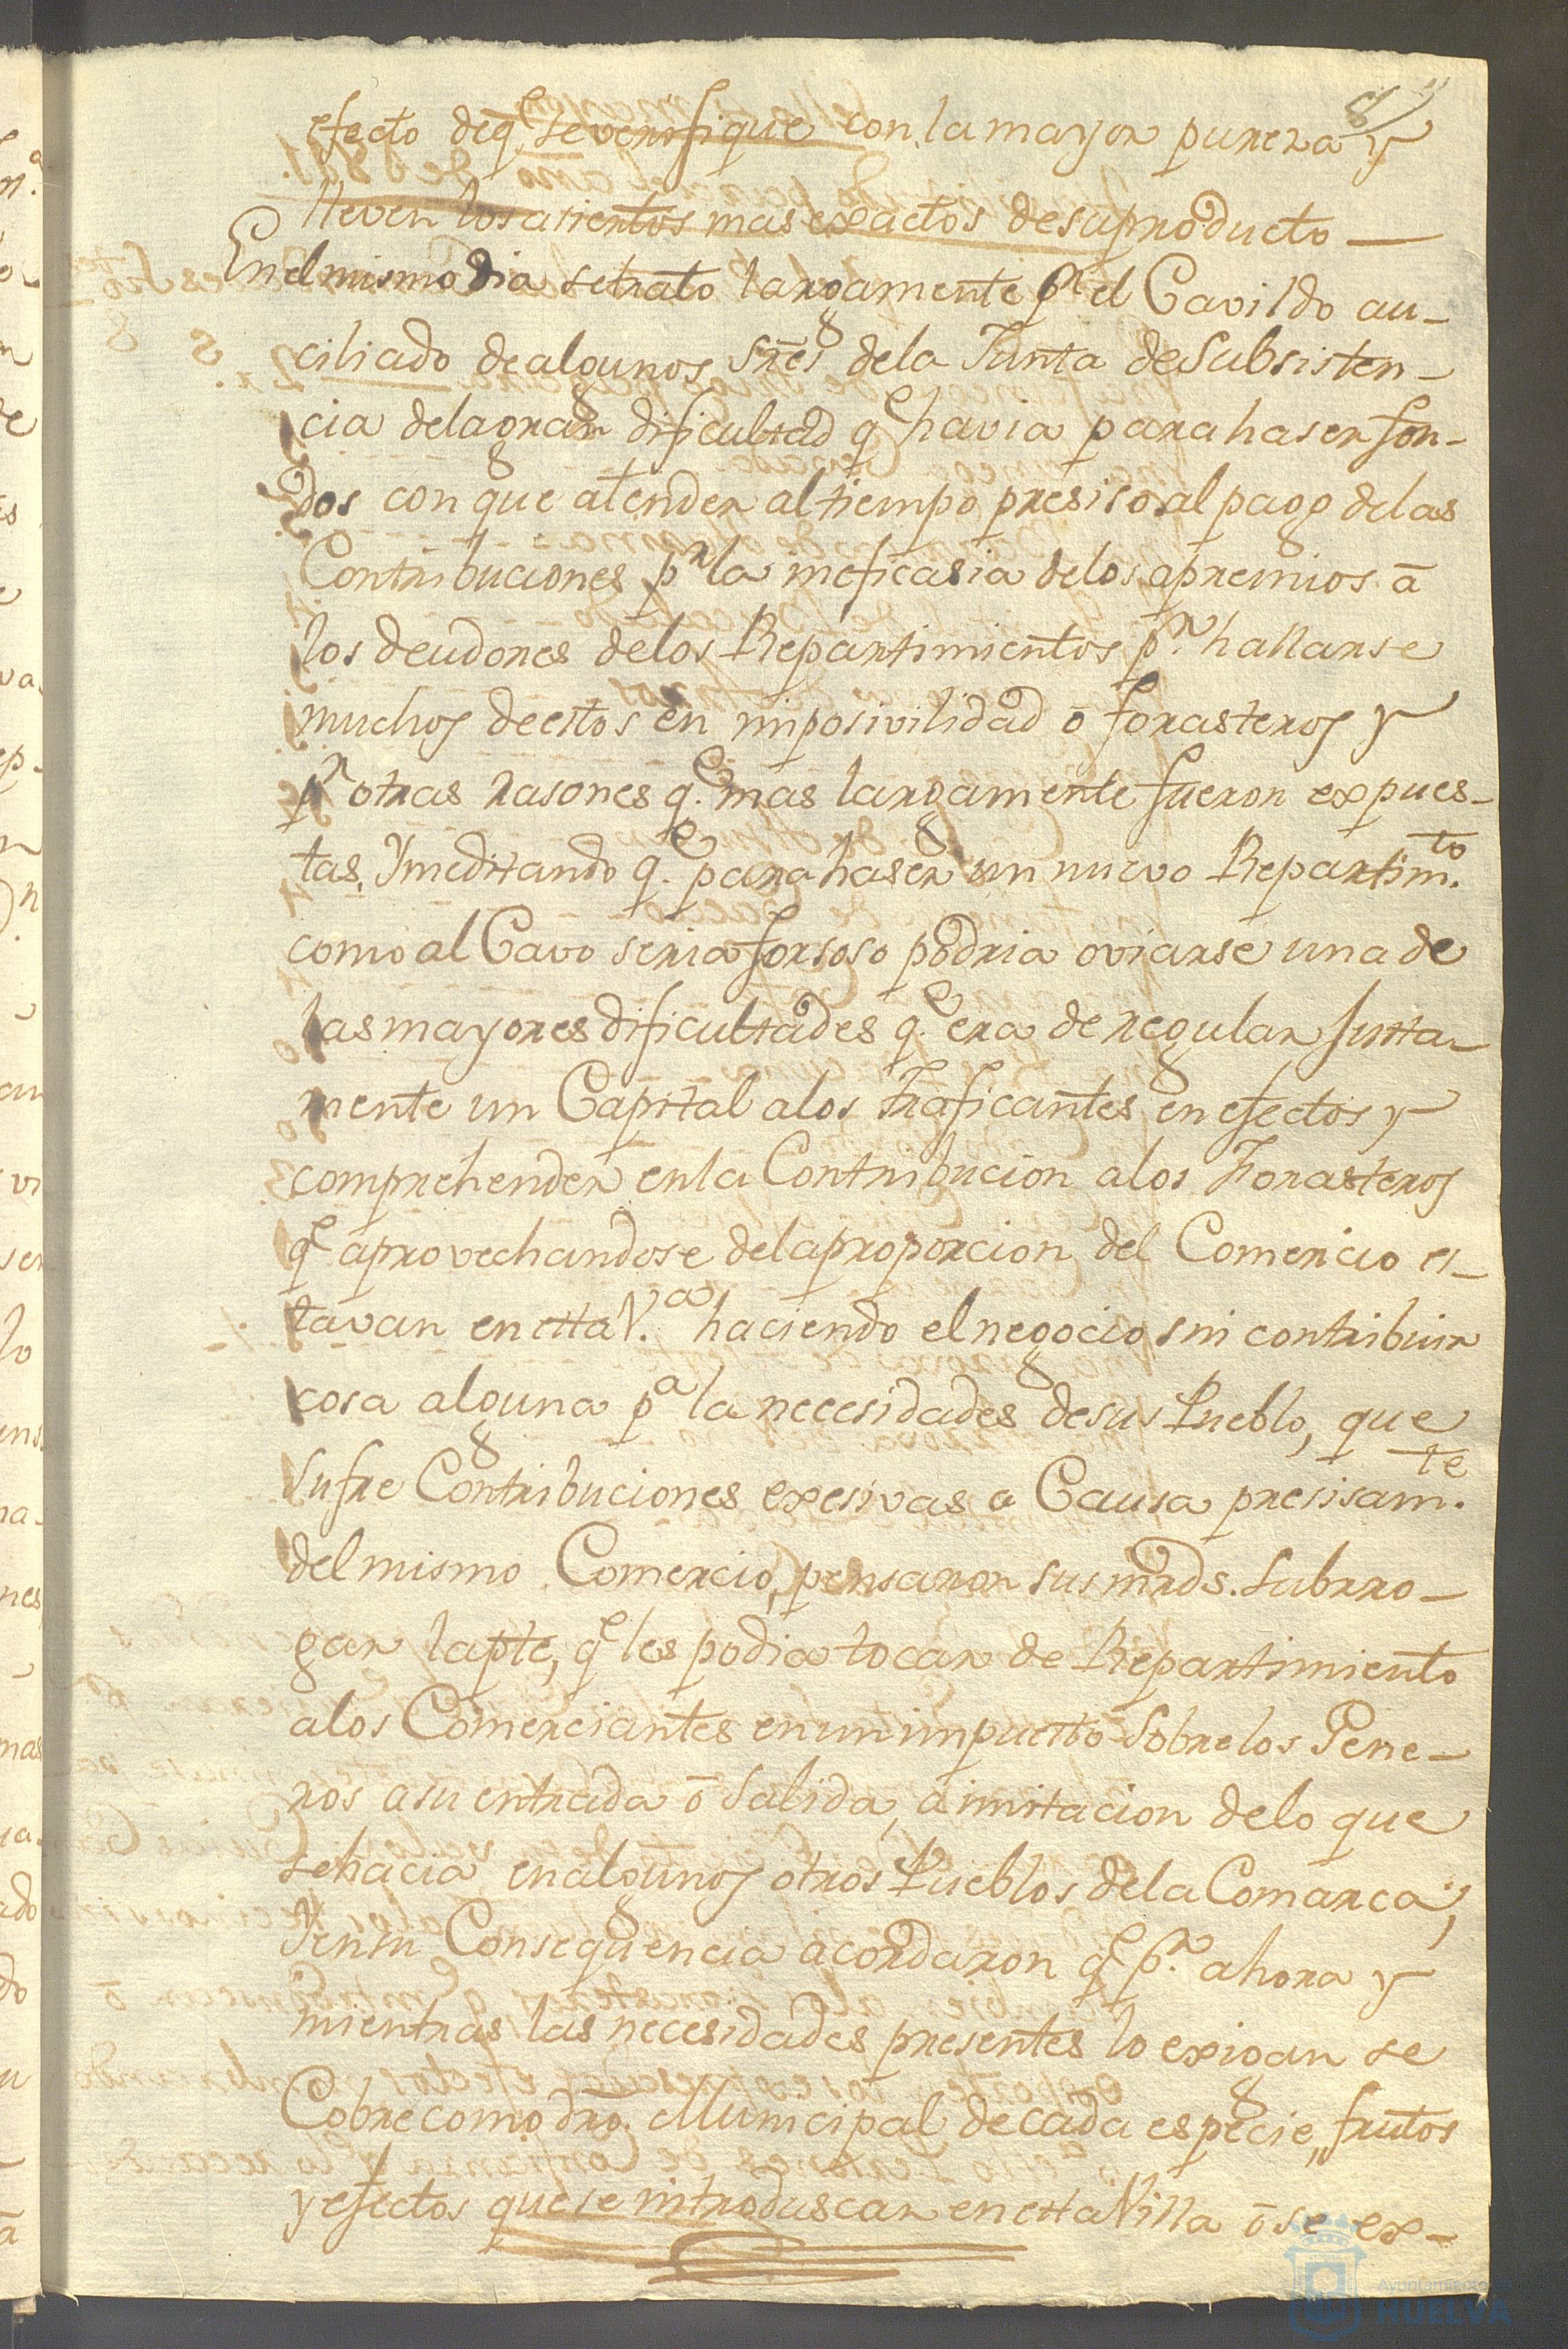 8
efecto de q.e se verifique con la mayor pureza y
lleven los asientos mas exactos de su producto —
En el mismo dia se trato largamente p.r el Cavildo au-
ciliado de algunos Sres de la Junta de Subsisten-
cia de la gran dificultad q.e havia para haser fon-
dos con que atender al tiempo presiso al pago de las
Contribuciones p.r la ineficasia de los apremios á
los deudores de los Repartimientos p.r hallarse
muchos de estos en imposivilidad ó forasteros y
p.r otras rasones q.e mas largamente fueron expues-
tas, Y meditando q.e para haser un nuevo Repartim.to
como al Cavo seria forsoso podria oviarse una de
las mayores dificultades q.e era de regular justa-
mente un Capital a los traficantes en efectos y
comprehender en la Contribucion a los Forasteros
q.e aprovechandose de la proporcion del Comercio es-
tavan en esta V.a haciendo el negocio sin contribuir
cosa alguna p.a la necesidades de sus Pueblo, que
sufre Contribuciones exesivas a Causa presisam.te
del mismo Comercio, pensaron sus mrds. subrro-
gar la pte, q.e les podia tocar de Repartimiento
a los Comerciantes en un impuesto sobre los Gene-
ros a su entrada ó salida, á imitacion de lo que
se hacia en algunos otros Pueblos de la Comarca,
Y en su Consequencia acordaron q.e p.r ahora y
mientras las necesidades presentes lo exigan se
Cobre como dro. Municipal de cada especie, frutos
y efectos que se introduscan en esta Villa ó se ex-
Ayuntamiento de
HUELVA